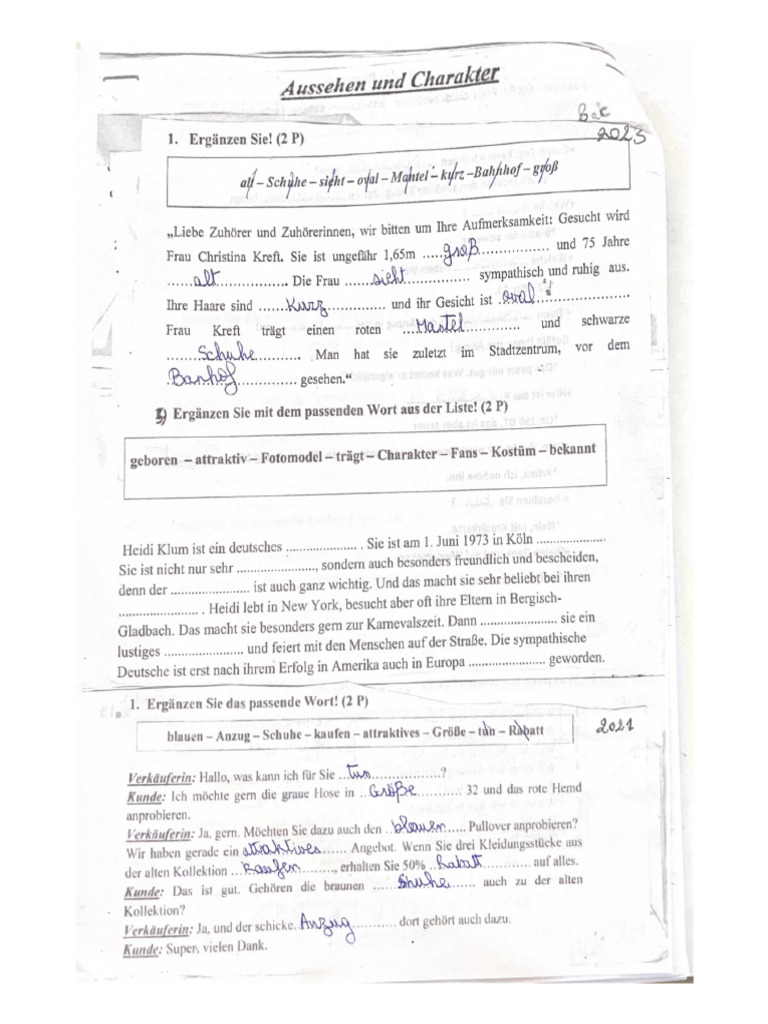 Aussehen und Charakter
Bac
2023
1. Ergänzen Sie! (2 P)
alt – Schuhe – sieht – oval – Mantel – kurz –Bahnhof – groß
„Liebe Zuhörer und Zuhörerinnen, wir bitten um Ihre Aufmerksamkeit: Gesucht wird
Frau Christina Kreft. Sie ist ungefähr 1,65m .....groß.................. und 75 Jahre
......alt.................. Die Frau ......sieht................ sympathisch und ruhig aus.
Ihre Haare sind .......Kurz............... und ihr Gesicht ist .oval.........................
Frau Kreft trägt einen roten ...Mantel.............. und schwarze
........Schuhe........... Man hat sie zuletzt im Stadtzentrum, vor dem
.Banhof............... gesehen.“
3) Ergänzen Sie mit dem passenden Wort aus der Liste! (2 P)
geboren – attraktiv – Fotomodel – trägt – Charakter – Fans – Kostüm – bekannt
Heidi Klum ist ein deutsches ..................... . Sie ist am 1. Juni 1973 in Köln .....................
Sie ist nicht nur sehr ......................., sondern auch besonders freundlich und bescheiden,
denn der ....................... ist auch ganz wichtig. Und das macht sie sehr beliebt bei ihren
....................... . Heidi lebt in New York, besucht aber oft ihre Eltern in Bergisch-
Gladbach. Das macht sie besonders gern zur Karnevalszeit. Dann ....................... sie ein
lustiges ....................... und feiert mit den Menschen auf der Straße. Die sympathische
Deutsche ist erst nach ihrem Erfolg in Amerika auch in Europa ....................... geworden.
1. Ergänzen Sie das passende Wort! (2 P)
2021
blauen – Anzug – Schuhe – kaufen – attraktives – Größe – tun – Rabatt
Verkäuferin: Hallo, was kann ich für Sie ...tun....................?
Kunde: Ich möchte gern die graue Hose in ..Größe............ 32 und das rote Hemd
anprobieren.
Verkäuferin: Ja, gern. Möchten Sie dazu auch den ..blauen...... Pullover anprobieren?
Wir haben gerade ein attraktives...... Angebot. Wenn Sie drei Kleidungsstücke aus
der alten Kollektion ...Kaufen.........., erhalten Sie 50% ..Rabatt.............. auf alles.
Kunde: Das ist gut. Gehören die braunen .......Shuhe......... auch zu der alten
Kollektion?
Verkäuferin: Ja, und der schicke..Anzug............ dort gehört auch dazu.
Kunde: Super, vielen Dank.